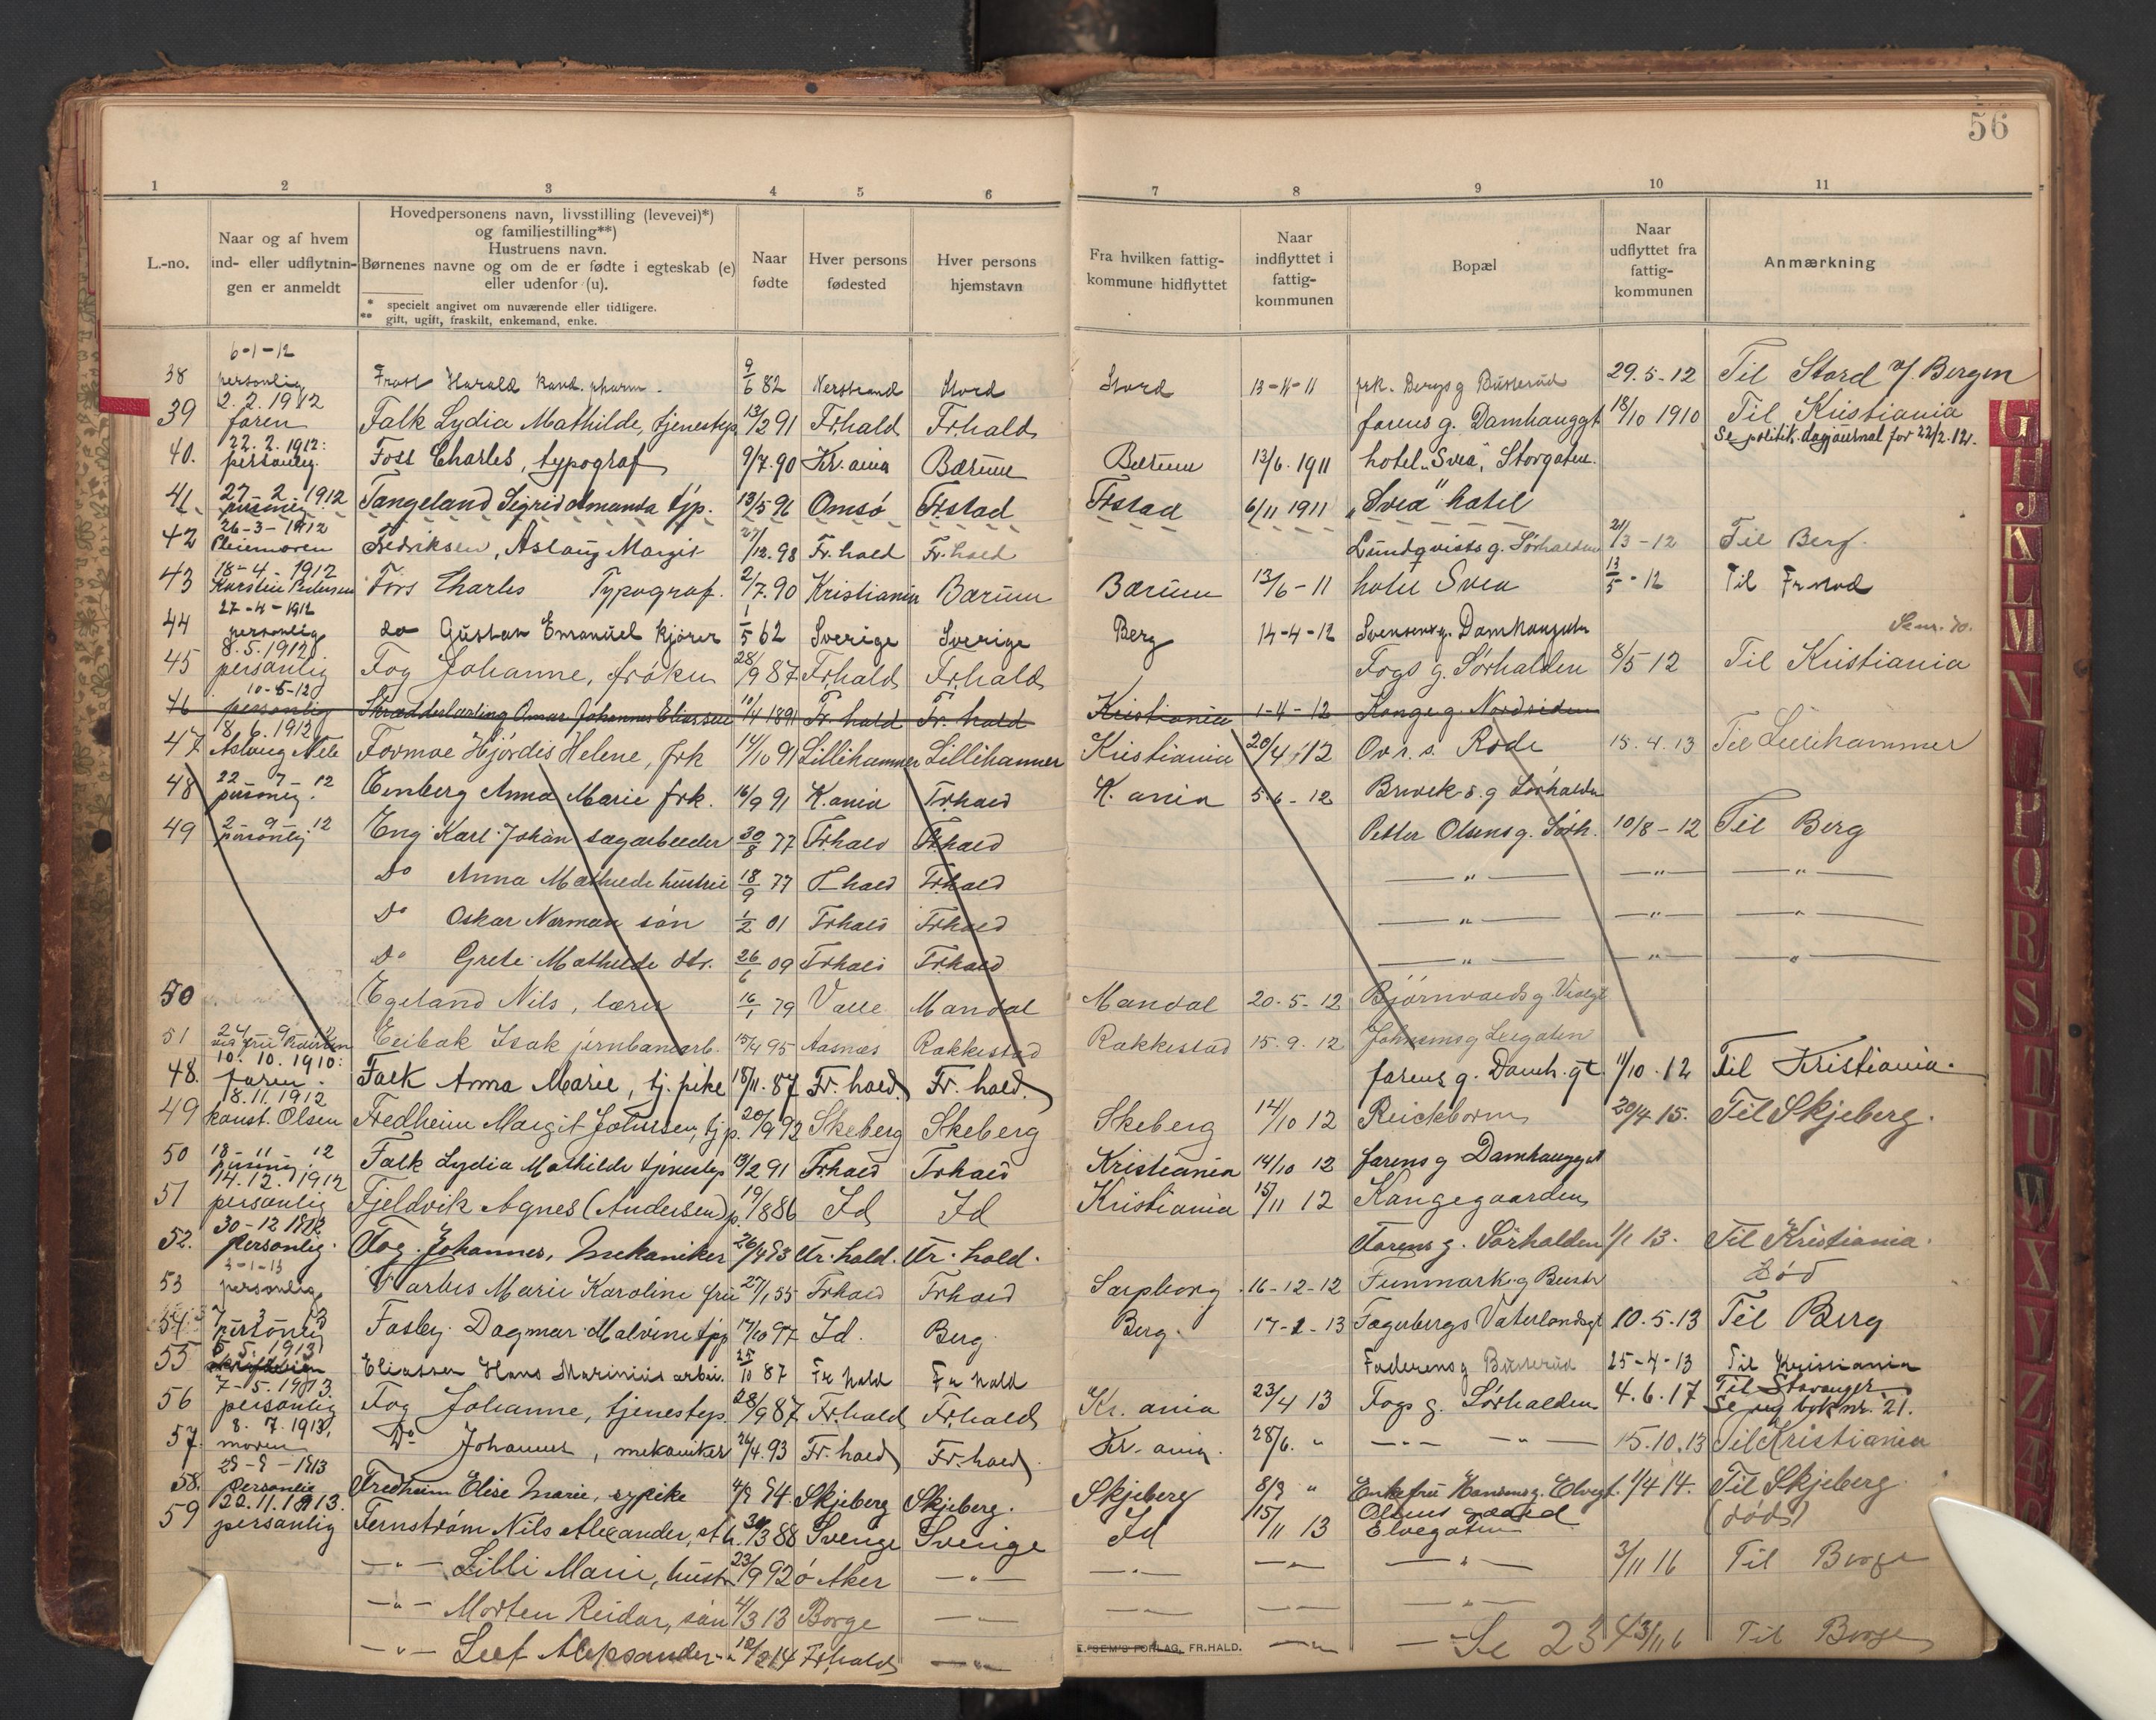 56
1 2 3 4 5 6 7 8 9 10 11
L.-no.
Naar og af hvem
ind- eller udflytnin-
gen er anmeldt
Hovedpersonens navn, livsstilling (levevei)*)
og familiestilling**)
Hustruens navn.
Børnenes navne og om de er fødte i egteskab (e)
eller udenfor (u).
* specielt angivet om nuværende eller tidligere.
** gift, ugift, fraskilt, enkemand, enke.
Naar
fødte
Hver persons
fødested
Hver persons
hjemstavn
Fra hvilken fattig-
kommune hidflyttet
Naar
indflyttet i
fattig-
kommunen
Bopæl
Naar
udflyttet fra
fattig-
kommunen
Anmærkning
6-1-12
38 personlig Frost Harald kand. pharm. 9/6 82 Nerstrand Stord Stord 13-11-11 frk. Bergs g Busterud 29.5-12 Til Stord v/ Bergen
2.2.1912
39 faren Falk Lydia Mathilde, tjenestep. 13/2 91 Fr.hald Fr.hald farens g. Damhauggt 18/10 1910 Til Kristiania
Se politik. dagjournal for 22/2.12.
22.2.1912:
40. personlig. Foss Charles, typograf 9/7.90 Kr.ania Bærum Bærum 13/6.1911 hotel "Svea", Storgaten.
27-2-1912
41. Tangeland Sigrid Amanda tjp. 13/5 96 Omsö Fr.stad Frstad 6/11 1911 "Svea" hotel
26-3-1912
42 Pleiemoren Fredriksen, Aslaug Margit 27/12.98 Fr.hald Fr.hald Lundqvists g. Sörhalden 21/3-12 Til Berg.
18-4-1912
43 Karsten Pedersen Foss Charles Typograf. 2/7.90 Kristiania Bærum Bærum 13/6-11 hotel Svea 13/5-12 Til Frstad
27-4-1912
44 personlig do Gustav Emanuel kjörer 1/5 62 Sverige Sverige Berg 14-4-12 Svensens g. Damhauggt
8.5.1912
45 personlig Fog Johanne, fröken 28/9 87 Fr.hald Fr.hald Fogs g. Sörhalden 8/5 12 Til Kristiania
10-5-12
46 personlig Skrædderlærling Omar Johannes Eliassen 10/4 1891 Fr.hald Fr.hald Kristiania 1-4-12 Konge g. Nordsiden
18.6.1912
47 Aslaug Formoe Hjördis Helene, frk 14/10 91 Lillihammer Lillihammer Kristiania 20/4 12 Ov.r.s. Rode 15.4.13 Til Lillehammer
22-7-12
48 personlig. Enberg Anna Marie frk. 16/9 91 K.ania Frhald K.ania 5.6-12 g Sörhalden
2-9-12
49 personlig Eng Karl Johan sagarbeider 30/8 77 Frhald Frhald Petter Olsens g. Sörh. 10/8-12 Til Berg
Do Anna Mathilde hustru 18/9 77 Frhald Frhald — " — — " — — " —
Do Oskar Norman sön 1/2 01 Frhald Frhald — " — — " — — " —
Do Grete Mathilde dtr. 26/6 09 Frhald Frhald — " — — " — — " —
50 Egeland Nils, lærer 16/1 79 Valle Mandal Mandal 20-5-12
24-9-12
51 Eeibak Isak jernbanearb. 15/4 95 Aasnæs Rakkestad Rakkestad 15.9.12
10.10.1910:
48. faren. Falk Anna Marie, tj. pike 18/11.87 Fr.hald. Fr.hald. farens g. Damh.gt 11/10.12 Til Kristiania.
18.11.1912
49 konst. Olsen Fredheim Margit Johnsen, tjp. 20/9 92 Skeberg Skeberg Skeberg 14/10 12 Reichborn 20/4 15. Til Skjeberg.
18-11-12
50 Falk Lydia Mathilde tjenestep 13/2 91 Frhald Frhald Kristiania 14/10 12 farens g Damhauggt
14.12.1912
51 personlig Fjeldvik Agnes (Andersen) p. 19/8 86 Id Id Kristiania 15/11 12 Kongegaarden
30-12 1912
52. Personlig. Fog. Johannes, Mekaniker 26/4 93 Fr.hald. Fr.hald. Farens g. Sörhalden 1/1 13. Til Kristiania.
3-1-13
53 personlig Marie Karoline fru 27/1 55 Frhald Frhald Sarpborg. 16-12-12 Död
7 3 13
54 personlig Fasby Dagmar Malvine tjp 17/10 97 Id. Berg. Berg. 17-2-13 Fagerbergs Vaterlandsgt 10.5.13 Til Berg
6.5.1913
55 Eliassen Hans Marinius arbei. 25/10 87 Frhald Frhald Faderens g Busterud 25-4-13 Til Kristiania
7-5.1913.
56 personlig Fog Johanne, tjenestep. 28/9 87 Fr.hald Fr.hald Kr.ania 23/4 13 Fogs g. Sörhalden 4.6.17 Til Stavanger
Se bok nr. 21.
8.7.1913.
57. moren Do Johannes, mekaniker 26/4.93 Fr.hald Fr.hald. Kr.ania. 28/6. " — " — — " — 15.10.13 Til Kristiania
28-8-1913
58. Personlig Fredheim Elise Marie, sypike 4/8 94 Skjeberg Skjeberg. Skjeberg 8/8 " Enkefru Hansens g. Elvegt. 1/4 14. Til Skjeberg
(död)
22.11.1913.
59 personlig Fernström Nils Alexander, sth. 30/3 88 Sverige Sverige Id 15/11 13 Olsens gaard
Elvegaten
— " — Lilli Marie, hustr 23/9 92 ö Aker — " — — " — — " — — " — 3/11 16 Til Borge
— " — Morten Reidar, sön 4/3 13 Borge — " — — " — — " — — " —
— " — Leif Aleksander — " 12/2 14 Frhald — " — — " — Se 234 3/11 6 Til Borge
E. SEM'S FORLAG, FR.HALD.
G H J K L M N P Q R S T U W X Y Z Æ